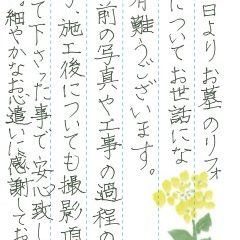 日よりお墓のリフォ
についてお世話にな
有難うございます。
前の写真や工事の過程の
、施工後についても撮影頂
て下さった事で、安心致し
。細やかなお心遣いに感謝してお